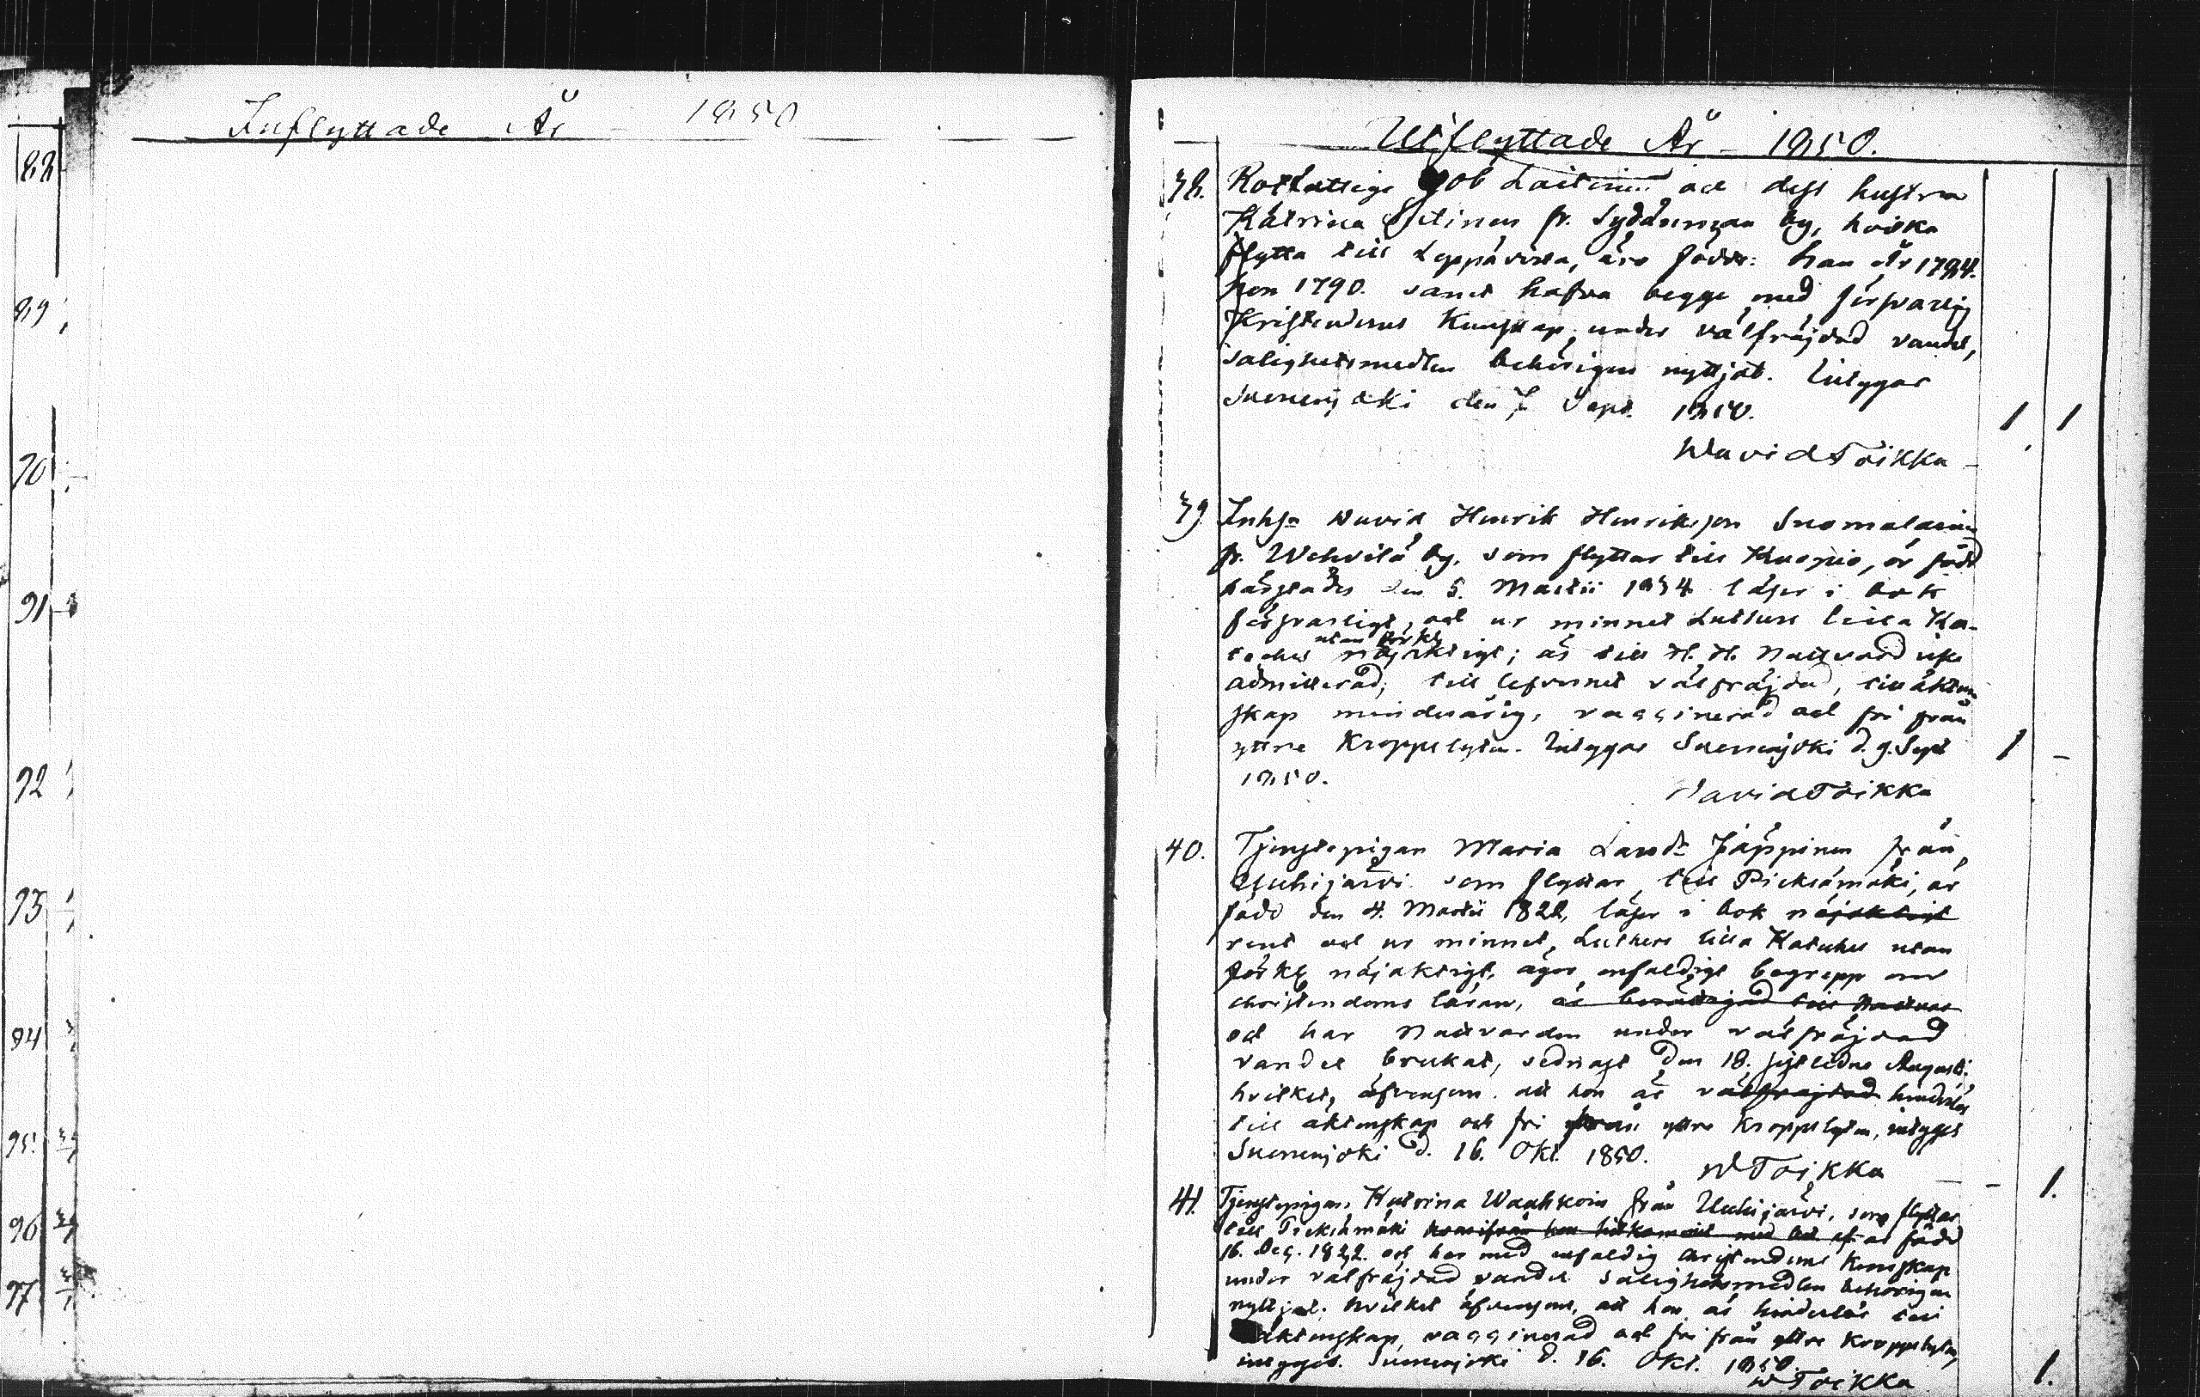 Inflyttade År 1850
88
89
90
91
92
93
94
95.
96
97
Utflyttade År - 1850.
38. Rotfattige Job Laitinen och dess hustru
Katrina fr. Syvänmaa by, hvilka
flytta till Leppävirta, äro födde: han År 1794.
hon 1790. samt hafva begge med försvarlig
Kristendoms Kunskap, under välfräjdad vandel,
salighetsmedlen behörigen nyttjat. Intygar
Suonenjoki den 7 Sept. 1850.
1 1
David Toikka
39. Inhs David Henrik Henriksson Suomalainen
fr. Wehvilä by, som flyttar till Kuopio, är född
härstädes den 5. Martii 1834 läser i bok
försvarligt, och ur minnet Lutheri lilla Ka-
utan förkl.
teches nöjaktigt; är till H. H. Nattvard icke
admitterad; till lefvernet välfräjdad, till äkten-
skap minderårig, vaccinerad och fri från
yttre Kroppslyten. Intygar Suonenjoki d. 9. Sept
1 -
1850.
David Toikka
40. Tjenstepigan Maria Larsdr Jäppinen från
Uuhijärvi som flyttar till Pieksämäki, är
född den 4. Martii 1822, läser i bok nöjaktigt
rent och ur minnet, Lutheri lilla Kateches utan
förkl. nöjaktigt, äger enfaldigt begrepp om
christendoms läran, är berättigad till Nattvar
och har Nattvarden under välfräjdad
vandel brukat, sednast den 18. sistlidne Augusti.
hvilket, äfvensom att hon är välfräjdad hinderlös
till äktenskap och fri från yttre Kroppslyten, intygas
Suonenjoki d. 16. Okt. 1850.
D Toikka
- 1.
41. Tjenstepigan Katrina Waahkoin från Uuhijärvi, som flyttar
till Pieksämäki är född
16. Dec. 1822. och har med enfaldig christendoms kunskap
under välfräjdad vandel salighetsmedlen behörigen
nyttjat. hvilket äfvensom, att hon är hinderlös till
äktenskap, vaccinerad och fri från yttre Kroppslyten,
intygas. Suonenjoki d. 16. Okt. 1850.
D Toikka
1.